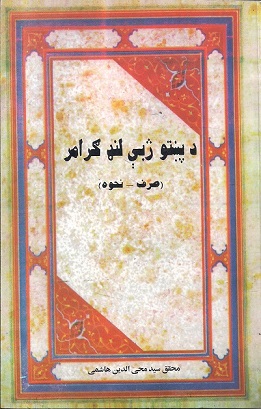 د پښتو ژبې لنډ ګرامر
(صرف – نحوه)
محقق سید محی الدین هاشمی